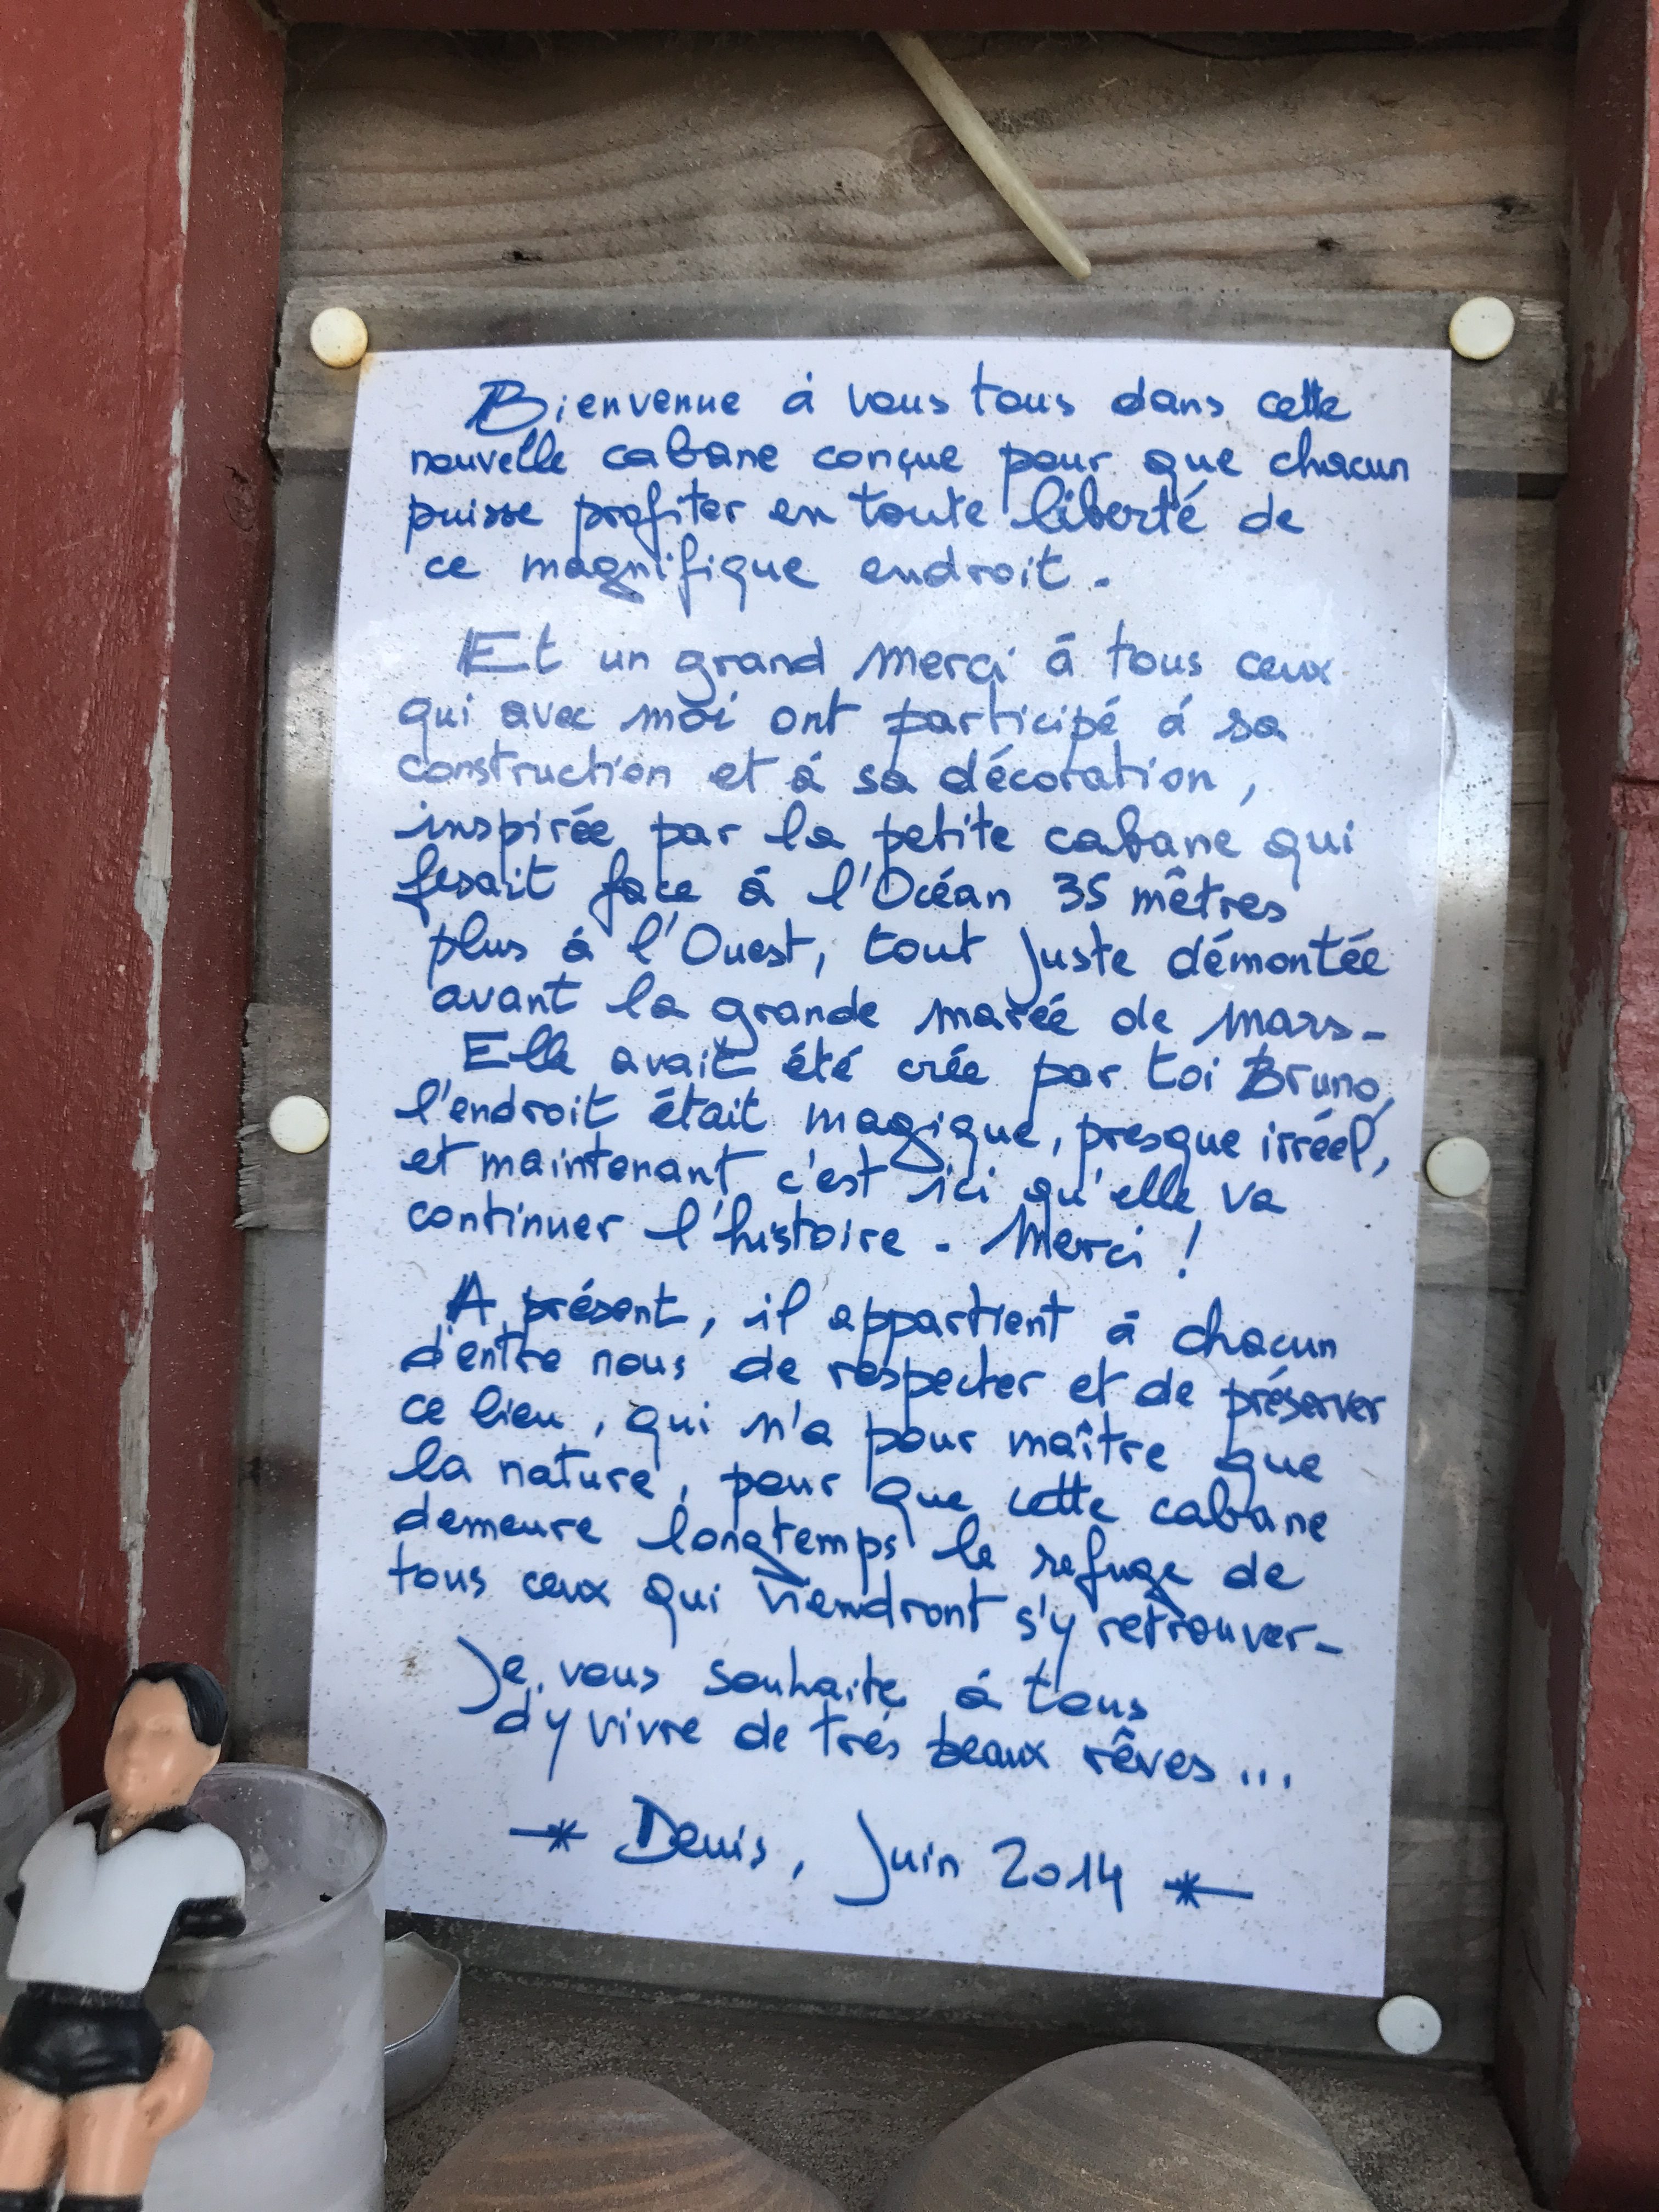 Bienvenue à vous tous dans cette
nouvelle cabane conçue pour que chacun
puisse profiter en toute liberté de
ce magnifique endroit.
Et un grand merci à tous ceux
qui avec moi ont participé à sa
construction et à sa décoration,
inspirée par la petite cabane qui
fesait face à l'Océan 35 mêtres
plus à l'Ouest, tout juste démontée
avant la grande marée de mars-
Elle avait été crée par toi Bruno,
l'endroit était magique, presque irréel,
et maintenant c'est ici qu'elle va
continuer l'histoire. Merci !
A présent, il appartient à chacun
d'entre nous de respecter et de préserver
ce lieu, qui n'a pour maître que
la nature, pour que cette cabane
demeure longtemps le refuge de
tous ceux qui viendront s'y retrouver-
Je vous souhaite à tous
d'y vivre de très beaux rêves...
—* Denis, Juin 2014 *—